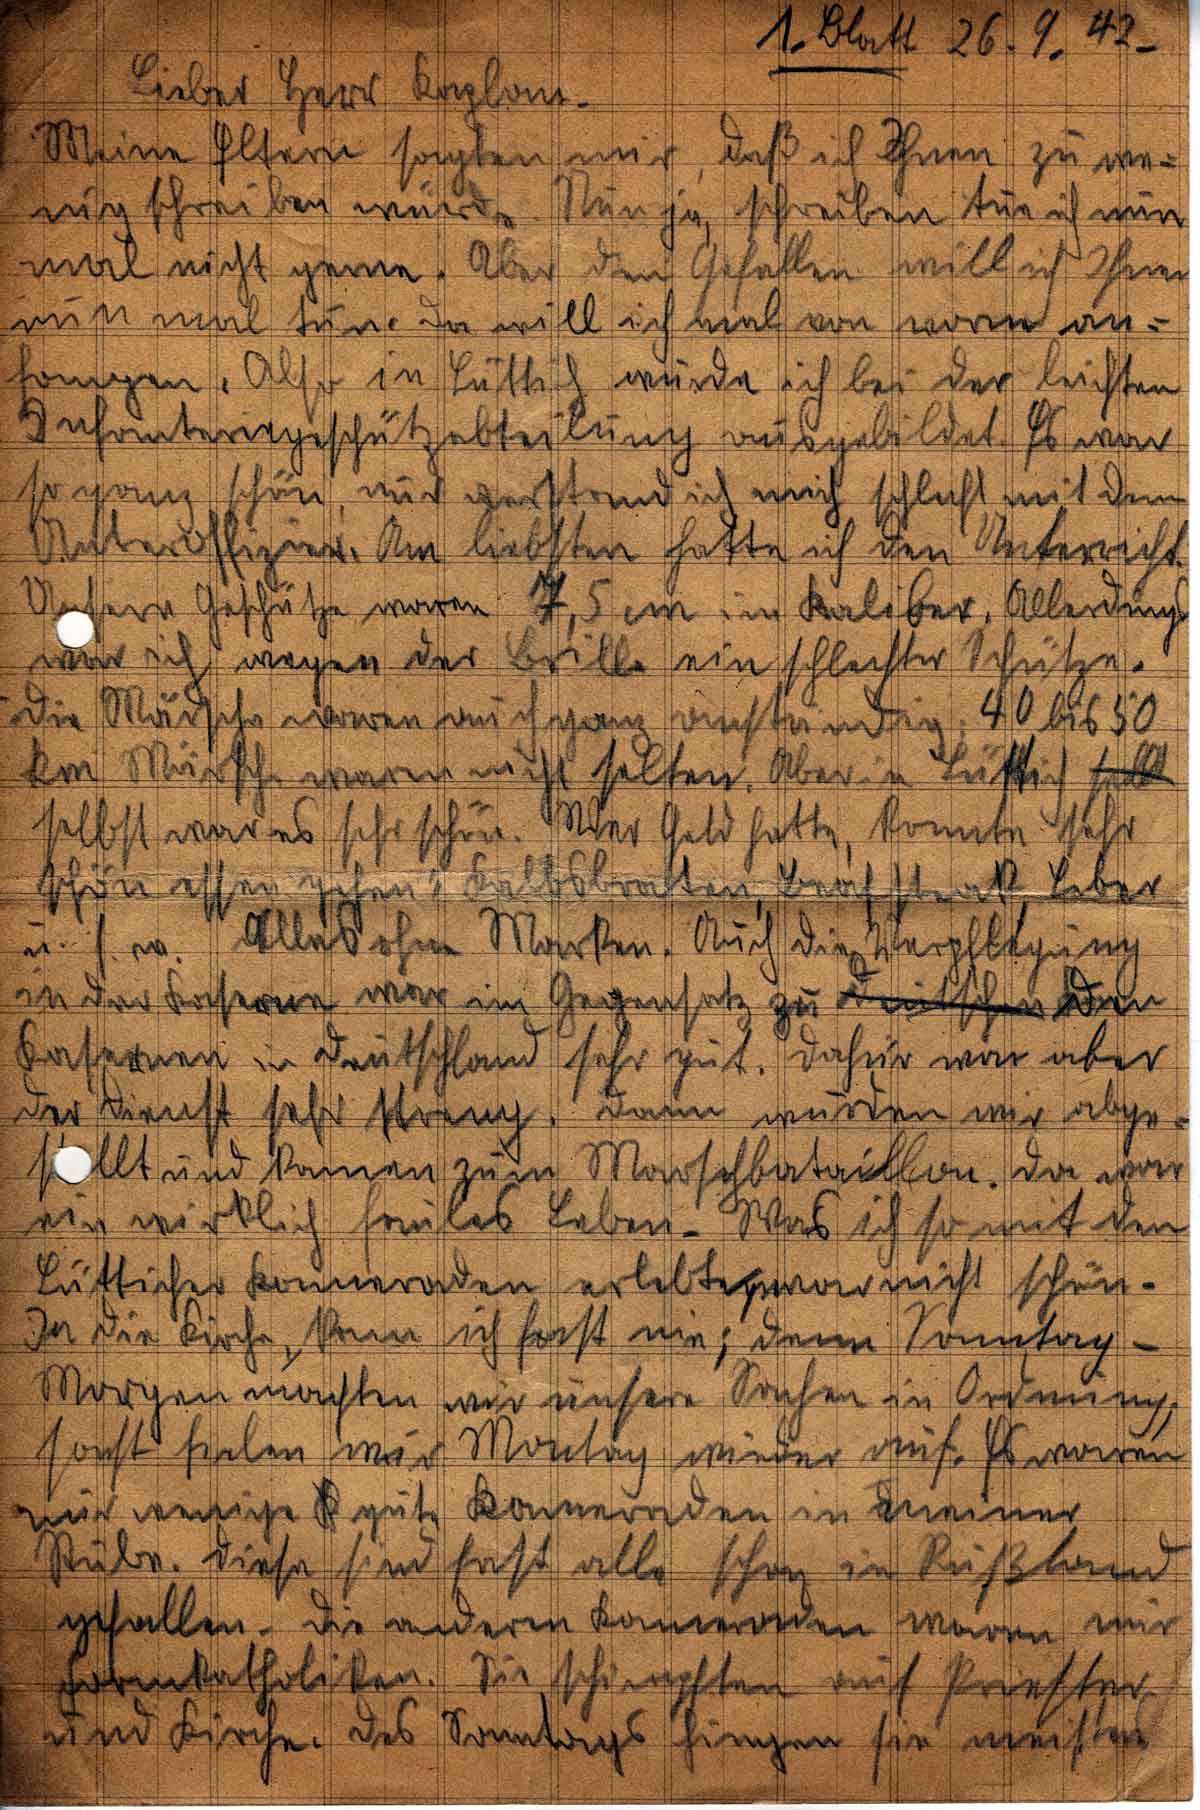 1. Blatt 26.9.42.
Lieber Herr Kaplan.
Meine Eltern sagten mir, daß ich Ihnen zu we=
nig schreiben würde. Nun ja, schreiben tue ich nun
mal nicht gerne. Aber den Gefallen will ich Ihnen
nun mal tun. Da will ich mal von vorne an=
fangen. Also in Lüttich wurde ich bei der leichten
Infanteriegeschützabteilung ausgebildet. Es war
so ganz schön, nur verstand ich mich schlecht mit dem
Unteroffizier. Am liebsten hatte ich den Unterricht.
Unsere Geschütze waren 7,5 cm im Kaliber. Allerdings
war ich wegen der Brille ein schlechter Schütze.
Die Märsche waren auch ganz anständig. 40 bis 50
km Märsche waren nicht selten. Aber in Lüttich selbst
selbst war es sehr schön. Wer Geld hatte, konnte sehr
schön essen gehen: Kalbsbraten, Beafsteak, Leber
u. s. w. Alles ohne Marken. Auch die Verpflegung
in der Kaserne war im Gegensatz zu deutschen den
Kasernen in Deutschland sehr gut. Dafür war aber
der Dienst sehr streng. Dann wurden wir abge=
stellt und kamen zum Marschbataillon. Da war
ein wirklich faules Leben. Was ich so mit den
Lütticher Kameraden erlebte, war nicht schön.
In die Kirche, kam ich fast nie; denn Sonntag-
Morgen machten wir unsere Sachen in Ordnung,
sonst fielen wir Montag wieder auf. Es waren
nur wenige gute Kameraden in meiner
Stube. Diese sind fast alle schon in Rußland
gefallen. Die anderen Kameraden waren nur
Formkatholiken. Sie schimpften auf Priester
und Kirche. Des Sonntags gingen sie meistens